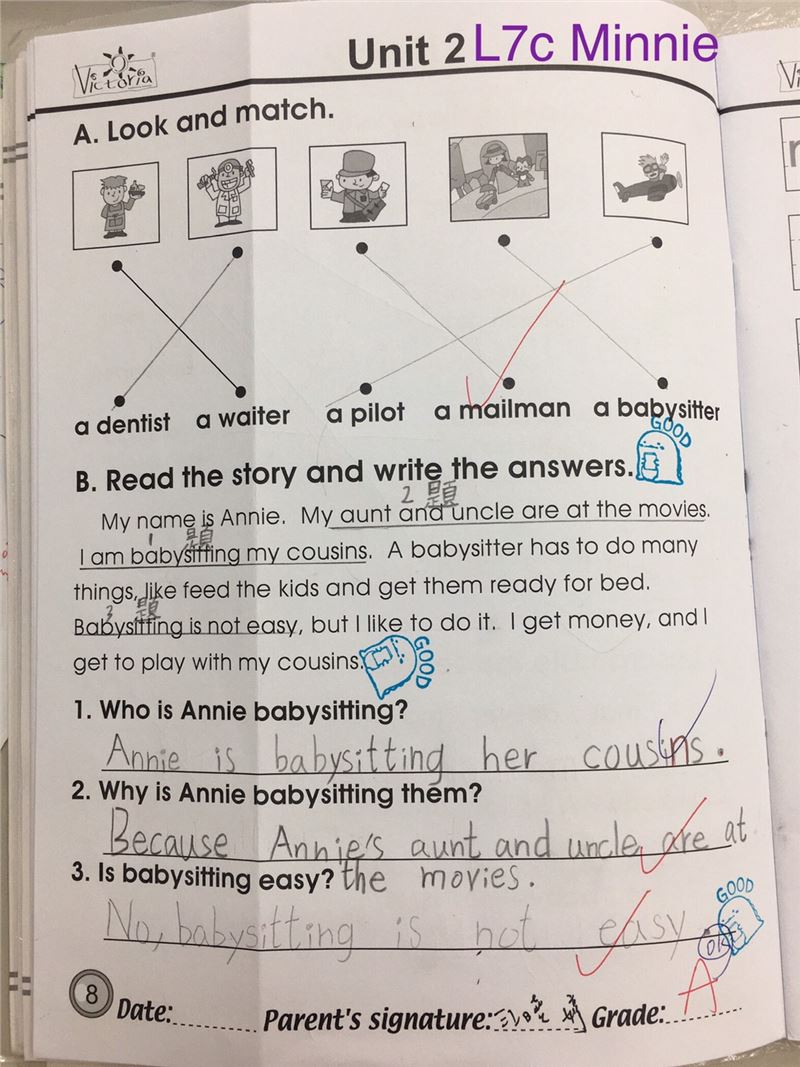 Victoria
Unit 2 L7c Minnie
A. Look and match.
a dentist a waiter a pilot a mailman a babysitter
GOOD
B. Read the story and write the answers.
2 題
My name is Annie. My aunt and uncle are at the movies.
1 題
I am babysitting my cousins. A babysitter has to do many
things, like feed the kids and get them ready for bed.
3 題
Babysitting is not easy, but I like to do it. I get money, and I
get to play with my cousins.
GOOD
1. Who is Annie babysitting?
Annie is babysitting her cousins.
2. Why is Annie babysitting them?
Because Annie's aunt and uncle are at
the movies.
3. Is babysitting easy?
No, babysitting is not easy
GOOD
OK
A
8 Date: Parent's signature: Grade: